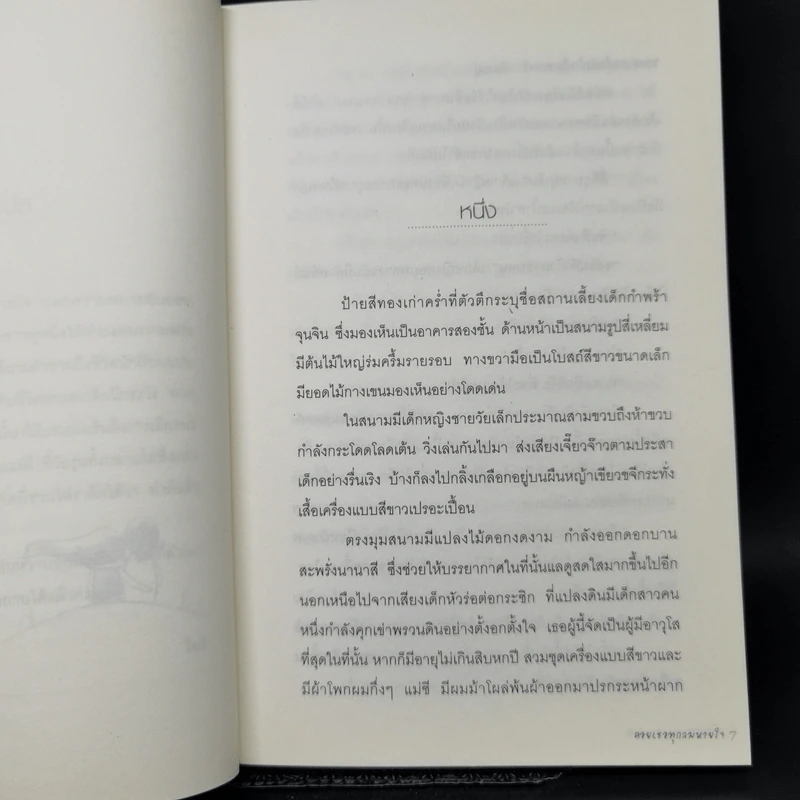 หนึ่ง
ป้ายสีทองเก่าคร่ำที่ตัวตึกระบุชื่อสถานเลี้ยงเด็กกำพร้า
จุนจิน ซึ่งมองเห็นเป็นอาคารสองชั้น ด้านหน้าเป็นสนามรูปสี่เหลี่ยม
มีต้นไม้ใหญ่ร่มครึ้มรายรอบ ทางขวามือเป็นโบสถ์สีขาวขนาดเล็ก
มียอดไม้กางเขนมองเห็นอย่างโดดเด่น
ในสนามมีเด็กหญิงชายวัยเล็กประมาณสามขวบถึงห้าขวบ
กำลังกระโดดโลดเต้น วิ่งเล่นกันไปมา ส่งเสียงเจี๊ยวจ๊าวตามประสา
เด็กอย่างรื่นเริง บ้างก็ลงไปกลิ้งเกลือกอยู่บนผืนหญ้าเขียวขจีกระทั่ง
เสื้อเครื่องแบบสีขาวเปรอะเปื้อน
ตรงมุมสนามมีแปลงไม้ดอกงดงาม กำลังออกดอกบาน
สะพรั่งนานาสี ซึ่งช่วยให้บรรยากาศในที่นั้นแลดูสดใสมากขึ้นไปอีก
นอกเหนือไปจากเสียงเด็กหัวร่อต่อกระซิก ที่แปลงดินมีเด็กสาวคน
หนึ่งกำลังคุกเข่าพรวนดินอย่างตั้งอกตั้งใจ เธอผู้นี้จัดเป็นผู้มีอาวุโส
ที่สุดในที่นั้น หากก็มีอายุไม่เกินสิบหกปี สวมชุดเครื่องแบบสีขาวและ
มีผ้าโพกผมกึ่งๆ แม่ชี มีผมม้าโผล่พ้นผ้าออกมาปรกระหน้าผาก
คอยเธอทุกลมหายใจ 7